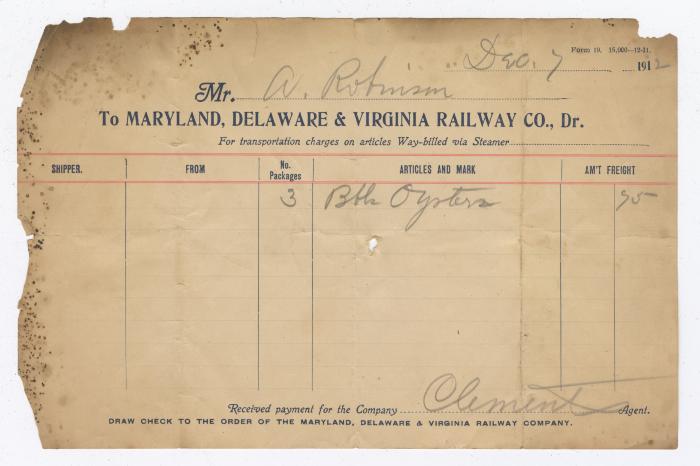 Form 19. 15,000—12-11.
Dec. 7 1912
Mr. A. Robinson
To MARYLAND, DELAWARE & VIRGINIA RAILWAY CO., Dr.
For transportation charges on articles Way-billed via Steamer
SHIPPER. FROM No. Packages ARTICLES AND MARK AM'T FREIGHT
3 Bbls Oysters 75
Received payment for the Company Clement Agent.
DRAW CHECK TO THE ORDER OF THE MARYLAND, DELAWARE & VIRGINIA RAILWAY COMPANY.